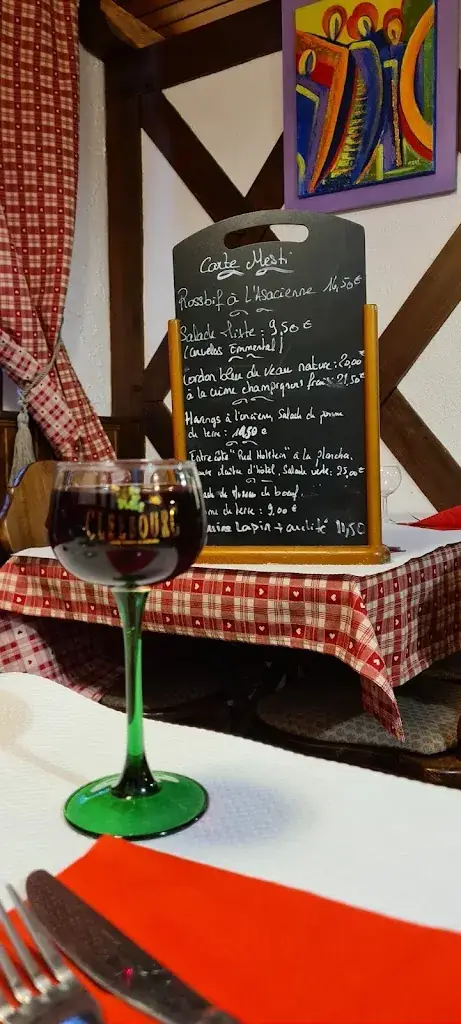 Carte Mesti
Rossbif à L'Asacienne 14,50€
Salade Mixte : 9,50 €
(Cruvelos Emmental)
Cordon bleu de veau nature : 20,00
à la crème champignons frais 21,50
Harengs à l'ancienne, Salade de pomme
de terre : 10,50 €
Entrecôte "Red Holstein" à la plancha,
maitre d'hôtel, Salade verte : 25,00€
de Museau de boeuf,
de terre : 9,00 €
Lapin + crudité 11,50
CLEEBOURG